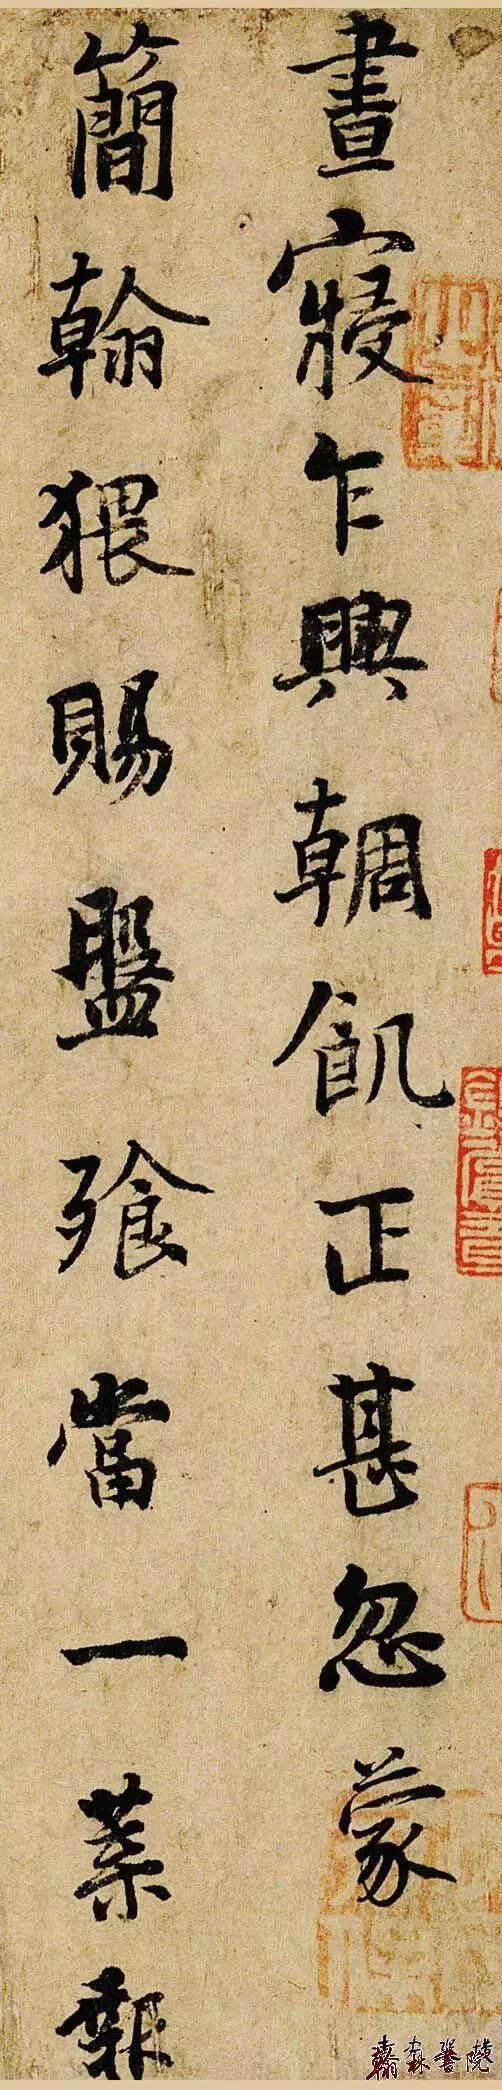 晝寢乍興輖飢正甚忽蒙
簡翰猥賜盤飧當一葉報
翰森書院